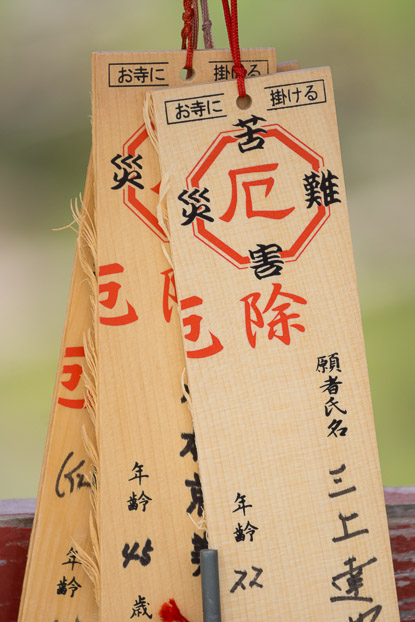 お寺に 掛ける
苦
災 厄 難
害
厄除
願者氏名
三上達
年齢
22
お寺に 掛ける
災
厄除
年齢
45
歳
厄
年齢